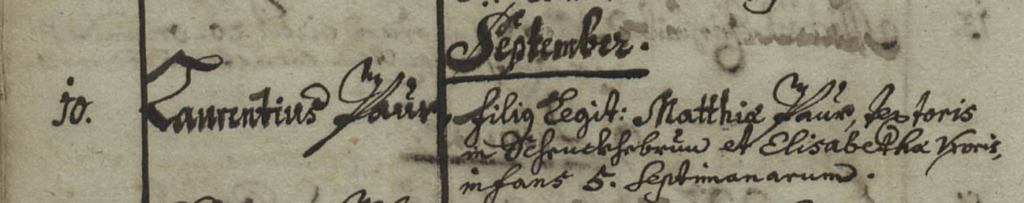 September.
10. Laurentius Paur, filig Legit: Matthiæ Paur, textoris
in Schenckhebrun et Elisabethæ Vxoris,
infans 5. septimanarum.